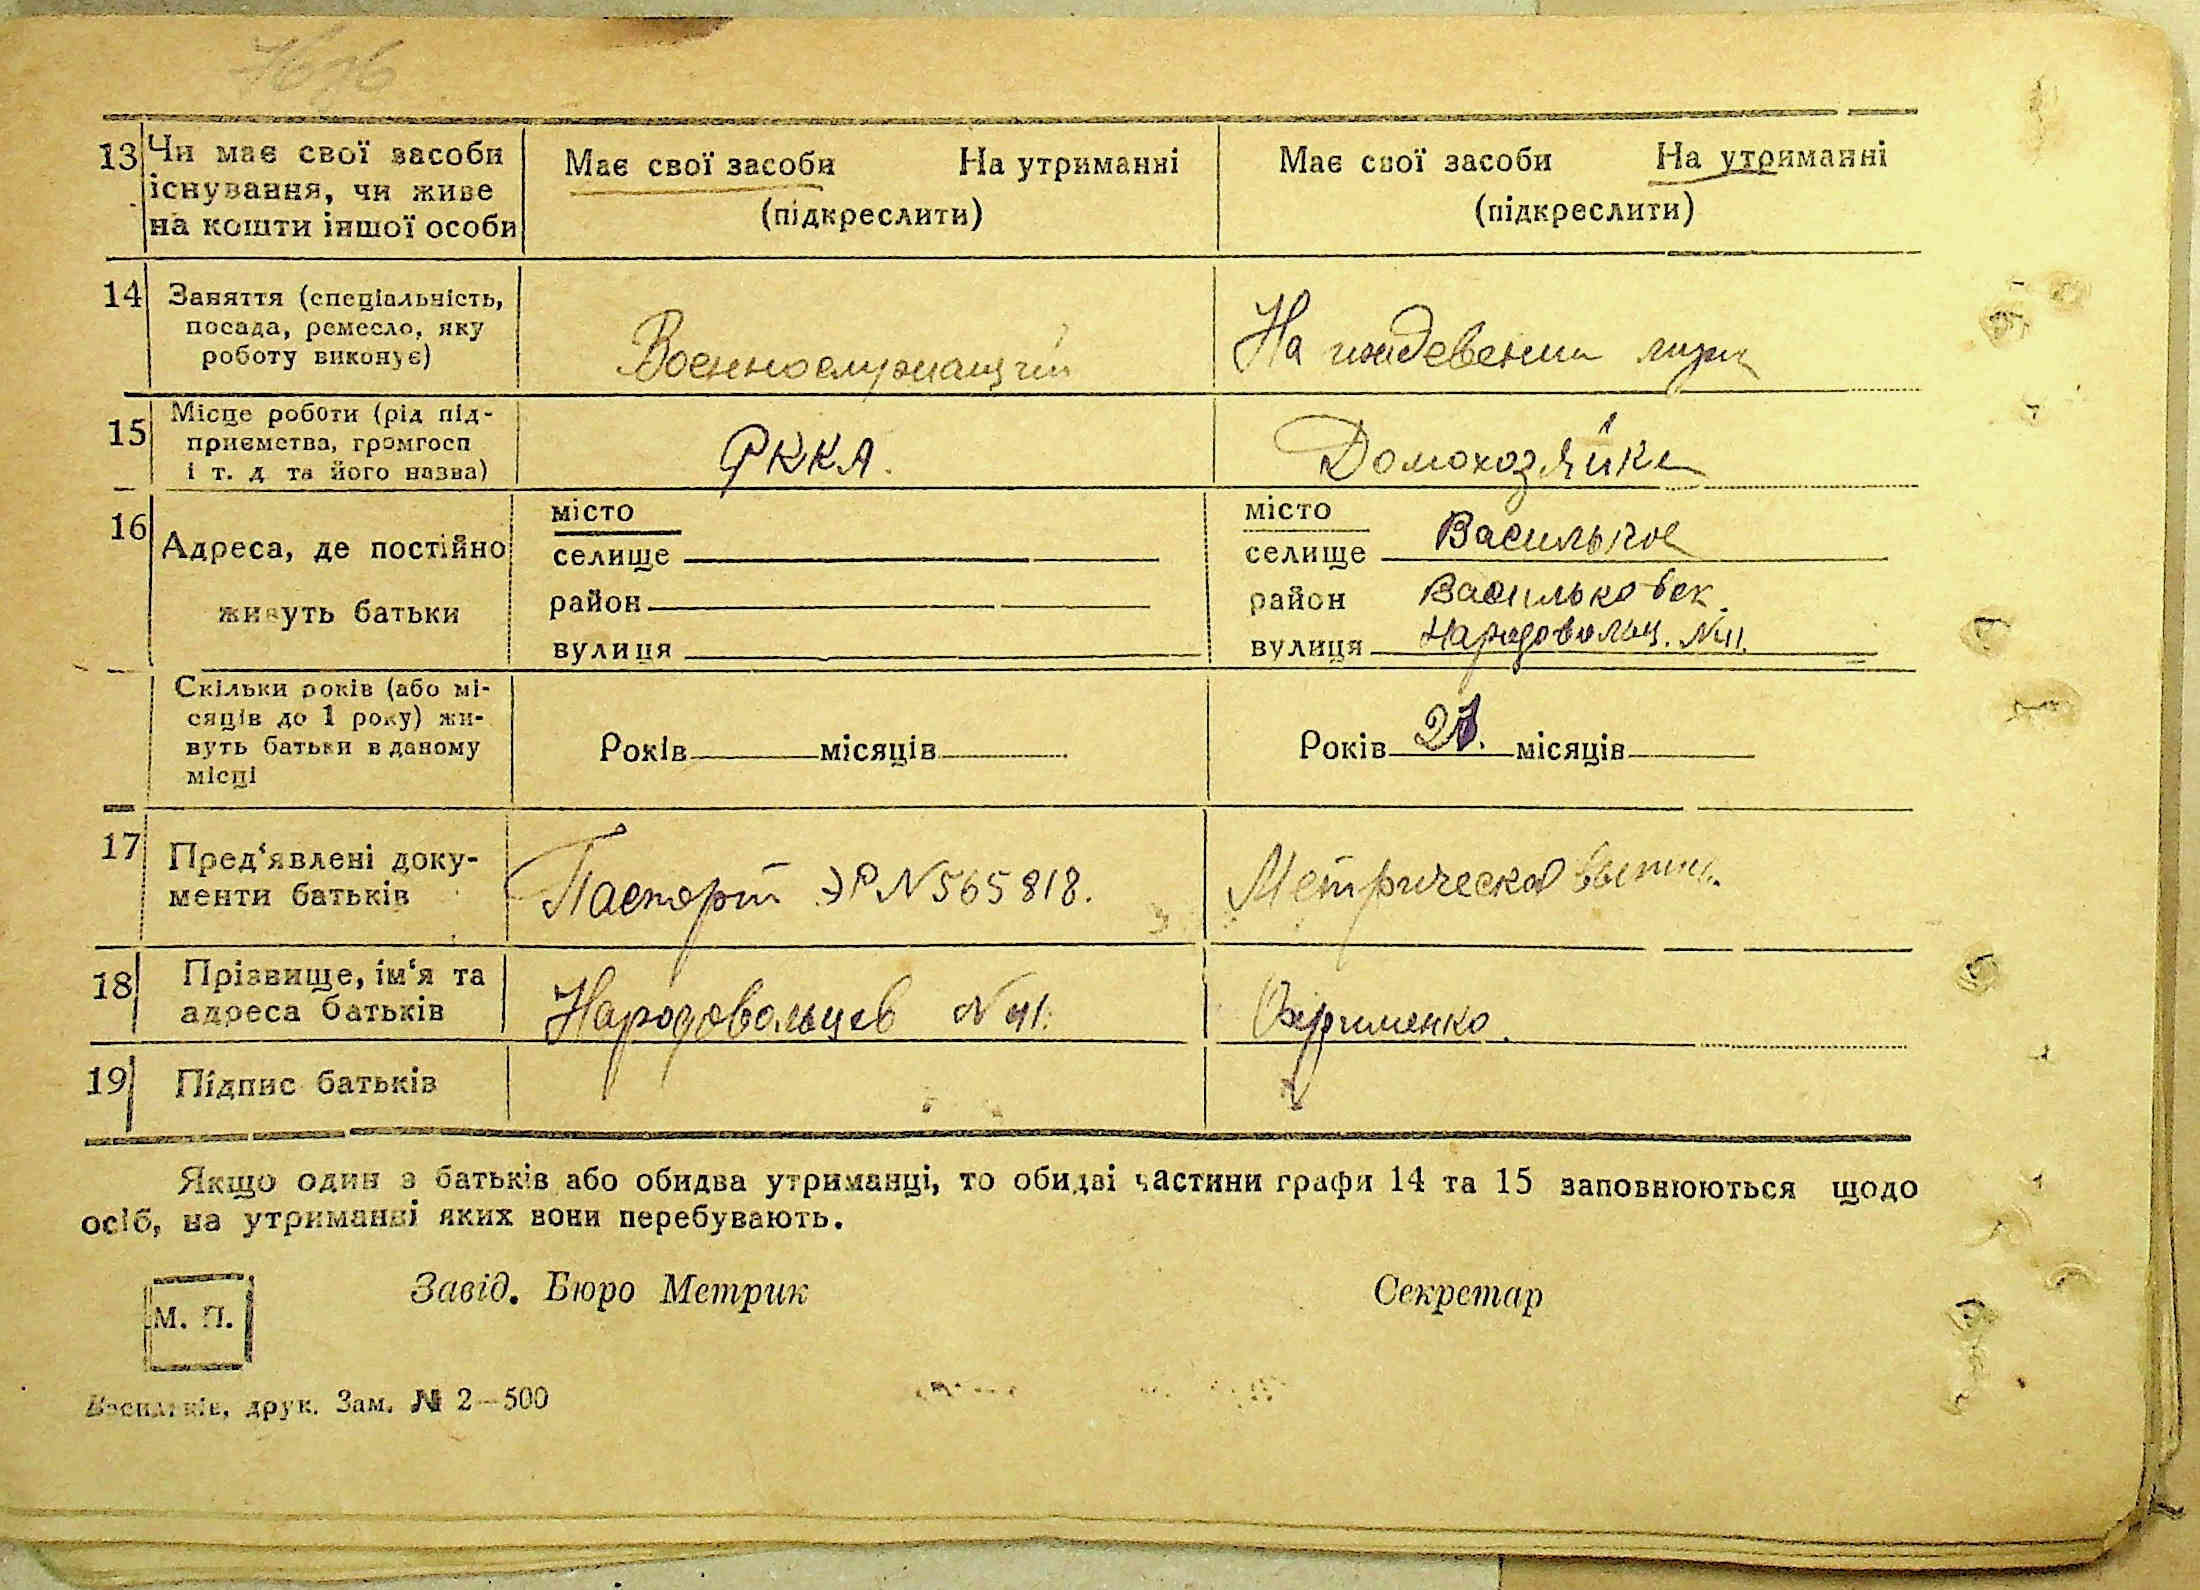 13 Чи має свої засоби існування, чи живе на кошти іншої особи
Має свої засоби На утриманні
(підкреслити)
Має свої засоби На утриманні
(підкреслити)
14 Заняття (спеціальність, посада, ремесло, яку роботу виконує)
Военнослужащий
На иждевении мужа
15 Місце роботи (рід підприємства, громгосп і т. д та його назва)
РККА.
Домохозяйка
16 Адреса, де постійно живуть батьки
місто
селище
район
вулиця
місто
селище Васильков
район Васильковск.
вулиця Народовольц. №41.
Скільки років (або місяців до 1 року) живуть батьки в даному місці
Років місяців
Років місяців
17 Пред'явлені документи батьків
Паспорт ЭР №565818.
Метрическая
18 Прізвище, ім'я та адреса батьків
Народовольцев №41.
19 Підпис батьків
Якщо один з батьків або обидва утриманці, то обидві частини графи 14 та 15 заповнюються щодо
осіб, на утриманні яких вони перебувають.
М. П.
Завід. Бюро Метрик
Секретар
Васильків, друк. Зам. № 2—500